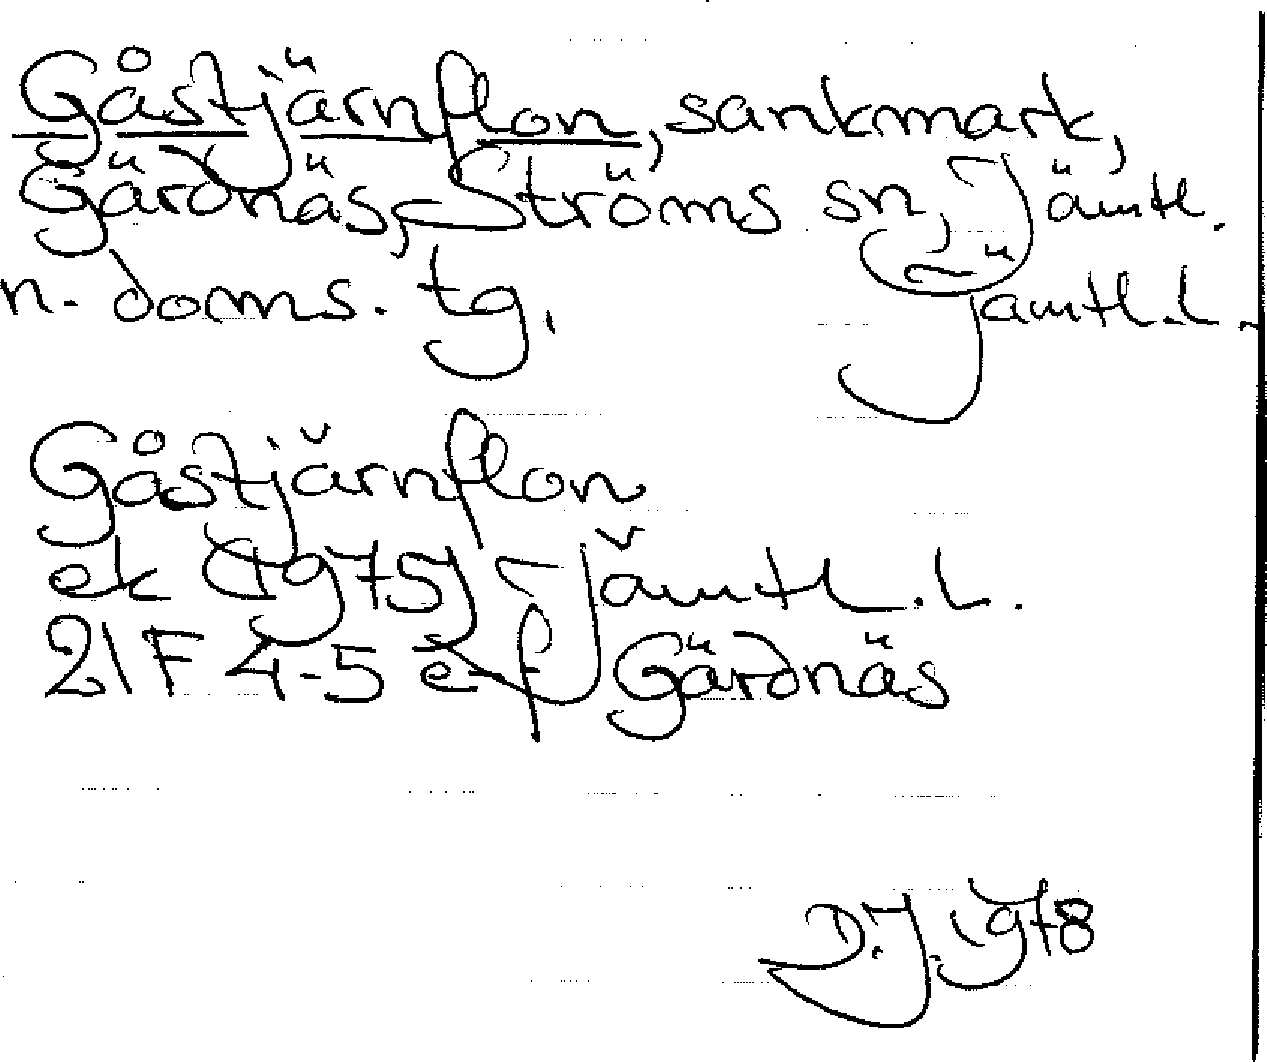 Gåstjärnflon, sankmark,
Gärdnäs, Ströms sn, Jämtl.
n. doms. tg. Jämtl. l.
Gåstjärnflon
ek (1975) Jämtl. l.
21F 4-5 e-f Gärdnäs
D.J. 1978